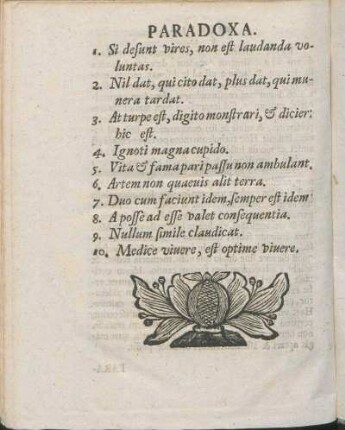 PARADOXA.
1. Si desunt vires, non est laudanda vo-
luntas.
2. Nil dat, qui cito dat, plus dat, qui mu-
nera tardat.
3. At turpe est, digito monstrari, & dicier:
hic est.
4. Ignoti magna cupido.
5. Vita & fama pari passu non ambulant.
6. Artem non quaeuis alit terra.
7. Duo cum faciunt idem, semper est idem
8. A posse ad esse valet consequentia.
9. Nullum simile claudicat.
10. Medice viuere, est optime viuere.